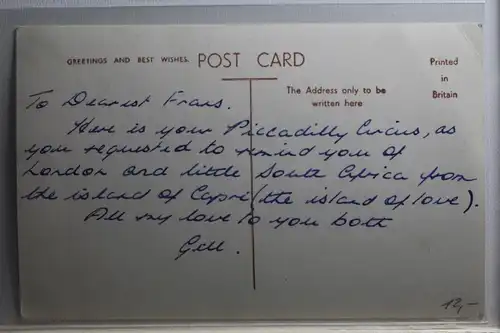 GREETINGS AND BEST WISHES. POST CARD
Printed
in
Britain
The Address only to be
written here
To Dearest Frans.
Here is your Piccadilly Circus, as
you requested to remind you of
London and little South Africa from
the island of Capri (the island of love).
All my love to you both
Gill.
12,-